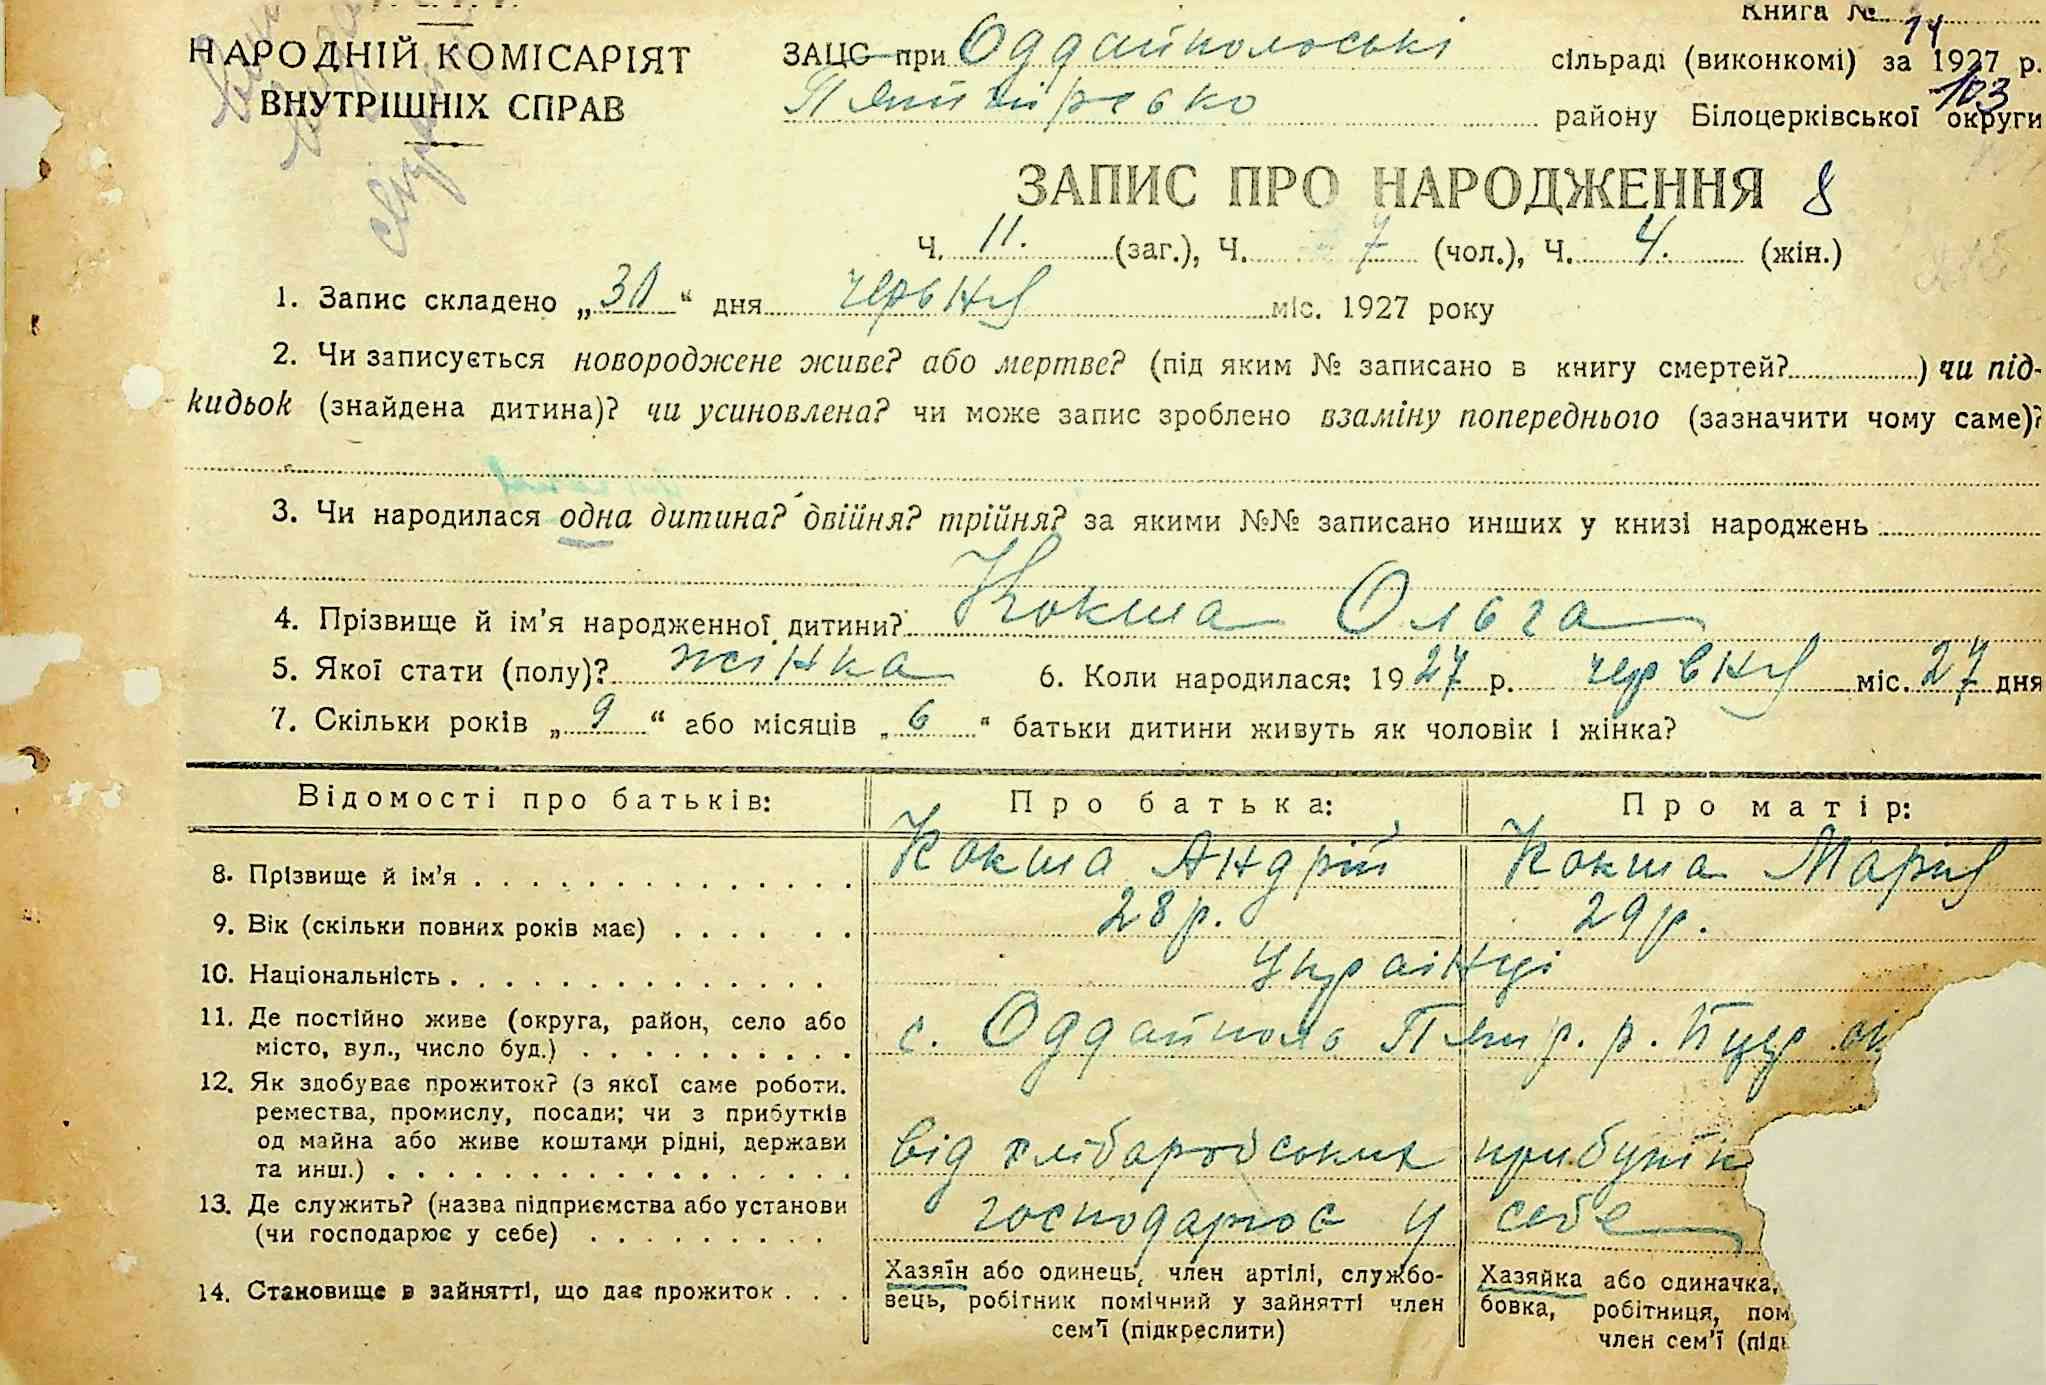 Книга № 14
НАРОДНІЙ КОМІСАРІЯТ
ВНУТРІШНІХ СПРАВ
ЗАЦС при Оддайпольські сільраді (виконкомі) за 1927 р.
району Білоцерківської округи
103
ЗАПИС ПРО НАРОДЖЕННЯ 8
Ч. 11. (заг.), Ч. 7 (чол.), Ч. 4. (жін.)
1. Запис складено „30“ дня червня міс. 1927 року
2. Чи записується новороджене живе? або мертве? (під яким № записано в книгу смертей?) чи під-
кидьок (знайдена дитина)? чи усиновлена? чи може запис зроблено взаміну попереднього (зазначити чому саме)?
3. Чи народилася одна дитина? двійня? трійня? за якими №№ записано инших у книзі народжень
4. Прізвище й ім’я народженної дитини? Кокша Ольга
5. Якої стати (полу)? жінка 6. Коли народилася: 1927 р. червня міс. 27 дня
7. Скільки років „9“ або місяців „6“ батьки дитини живуть як чоловік і жінка?
Відомості про батьків: Про батька: Про матір:
8. Прізвище й ім’я Кокша Андрій Кокша Марія
9. Вік (скільки повних років має) 28 р. 29 р.
10. Національність Українці
11. Де постійно живе (округа, район, село або
місто, вул., число буд.) с. Оддайполь р.
12. Як здобуває прожиток? (з якої саме роботи.
ремества, промислу, посади; чи з прибутків
од майна або живе коштами рідні, держави
та инш.) від хліборобських прибутк
13. Де служить? (назва підприємства або установи
(чи господарює у себе) господарює у себе
14. Становище в зайнятті, що дає прожиток
Хазяїн або одинець, член артілі, службо-
вець, робітник помічний у зайнятті член
сем’ї (підкреслити)
Хазяйка або одиначка,
бовка, робітниця, пом
член сем’ї (під